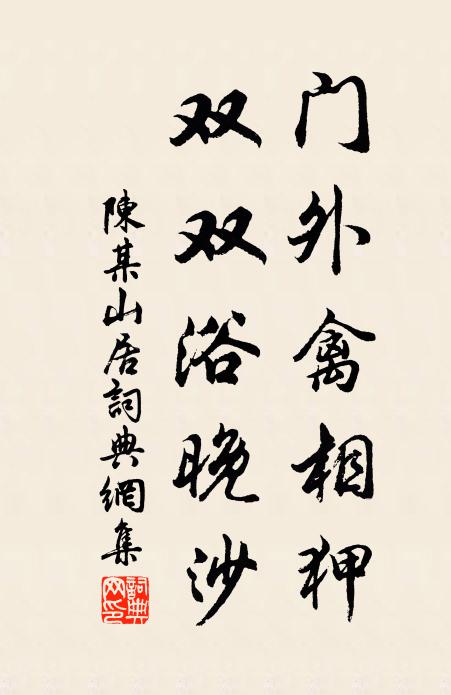 门外禽相狎
双双浴晚沙
陳某山居詞典網集
詞典网印